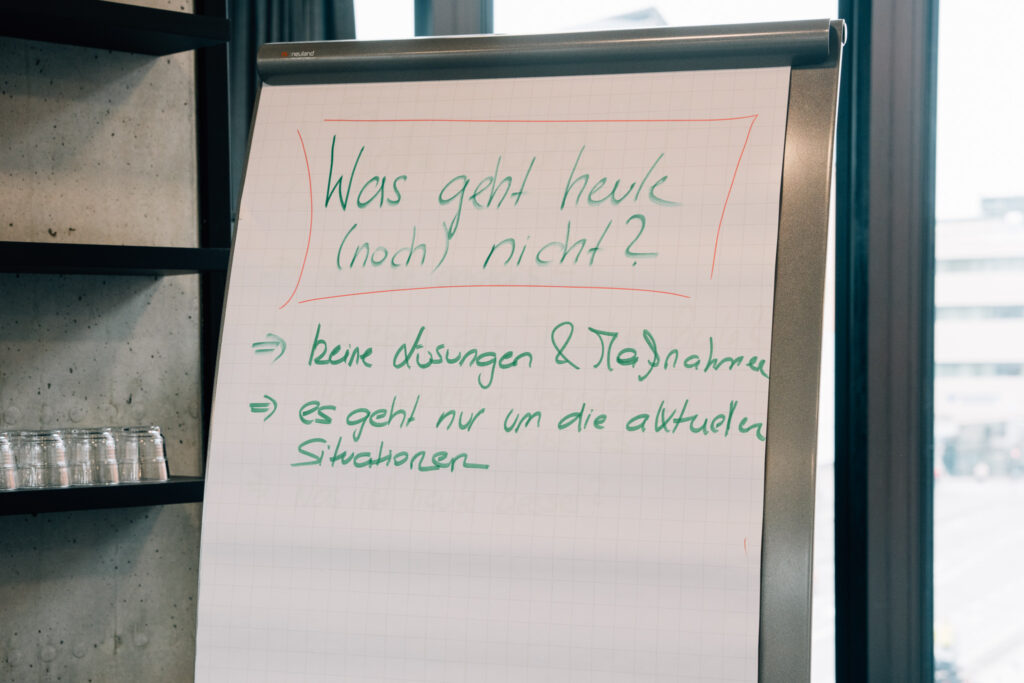 neuland
Was geht heute
(noch) nicht?
⇒ keine Lösungen & Maßnahmen
⇒ es geht nur um die aktuellen
Situationen